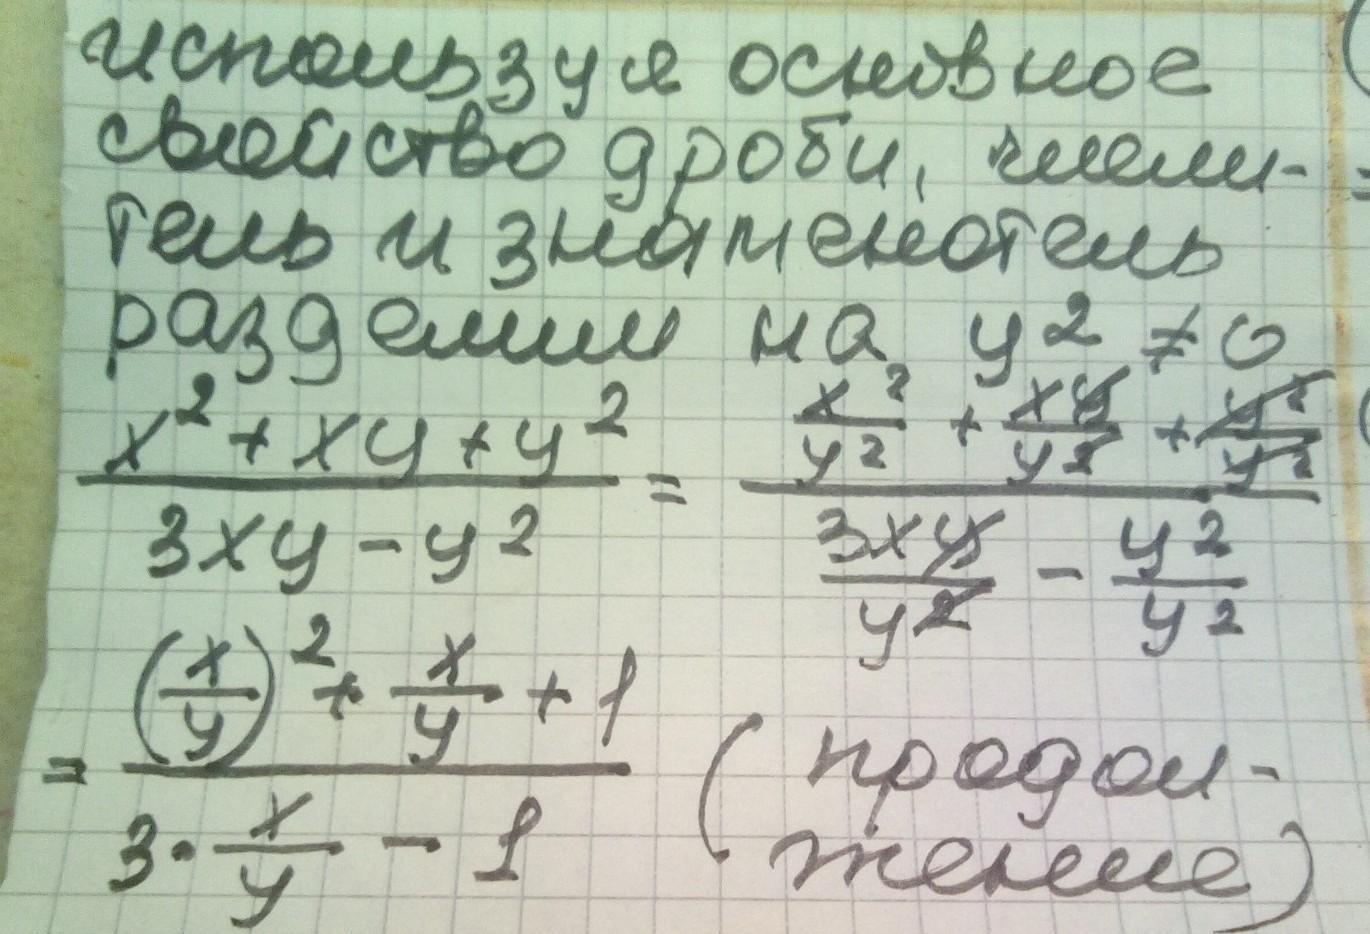 используя основное
свойство дроби, числи-
тель и знаменатель
разделим на y2 ≠ 0
(x² + xy + y²)/(3xy - y²) = (x²/y² + xy/y² + y²/y²)/(3xy/y² - y²/y²)
= ((x/y)² + x/y + 1)/(3·x/y - 1) (продол-
жение)